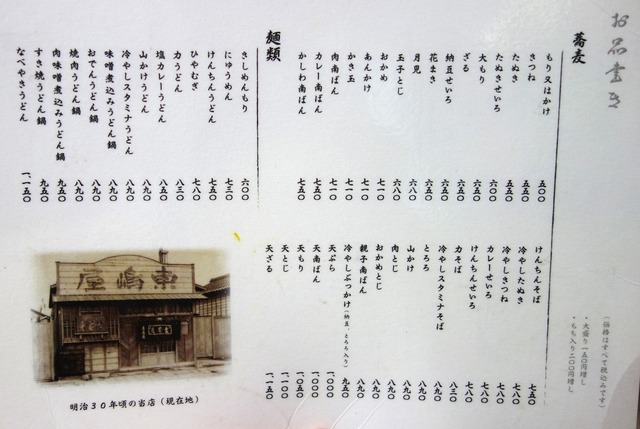 お品書き
(価格はすべて税込みです)
・大盛り一五〇円増し
・もち入り二〇〇円増し
蕎麦
もり又はかけ 五〇〇
きつね 五五〇
たぬき 五五〇
たぬきせいろ 六〇〇
大もり 六五〇
ざる 六五〇
納豆せいろ 六五〇
花まき 六五〇
月見 六八〇
玉子とじ 六八〇
おかめ 七一〇
あんかけ 七一〇
かき玉 七一〇
肉南ばん 七一〇
カレー南ばん 七五〇
かしわ南ばん 七五〇
けんちんそば 七五〇
冷やしたぬき 七八〇
冷やしきつね 七八〇
カレーせいろ 七八〇
けんちんせいろ 七八〇
力そば 八三〇
冷やしスタミナそば 八九〇
とろろ 八九〇
山かけ 八九〇
肉とじ 八九〇
おかめとじ 八九〇
親子南ばん 八九〇
冷やしぶっかけ(納豆、とろろ入り) 九五〇
天ぷら 一、〇〇〇
天南ばん 一、〇〇〇
天もり 一、〇五〇
天とじ 一、一〇〇
天ざる 一、一五〇
麺類
きしめんもり 六〇〇
にゅうめん 七三〇
けんちんうどん 七八〇
ひやむぎ 七八〇
力うどん 八三〇
塩カレーうどん 八五〇
山かけうどん 八九〇
冷やしスタミナうどん 八九〇
味噌煮込みうどん鍋 八九〇
おでんうどん鍋 八九〇
焼肉うどん鍋 八九〇
肉味噌煮込みうどん鍋 九五〇
すき焼うどん鍋 九五〇
なべやきうどん 一、一五〇
東嶋屋
明治30年頃の当店(現在地)